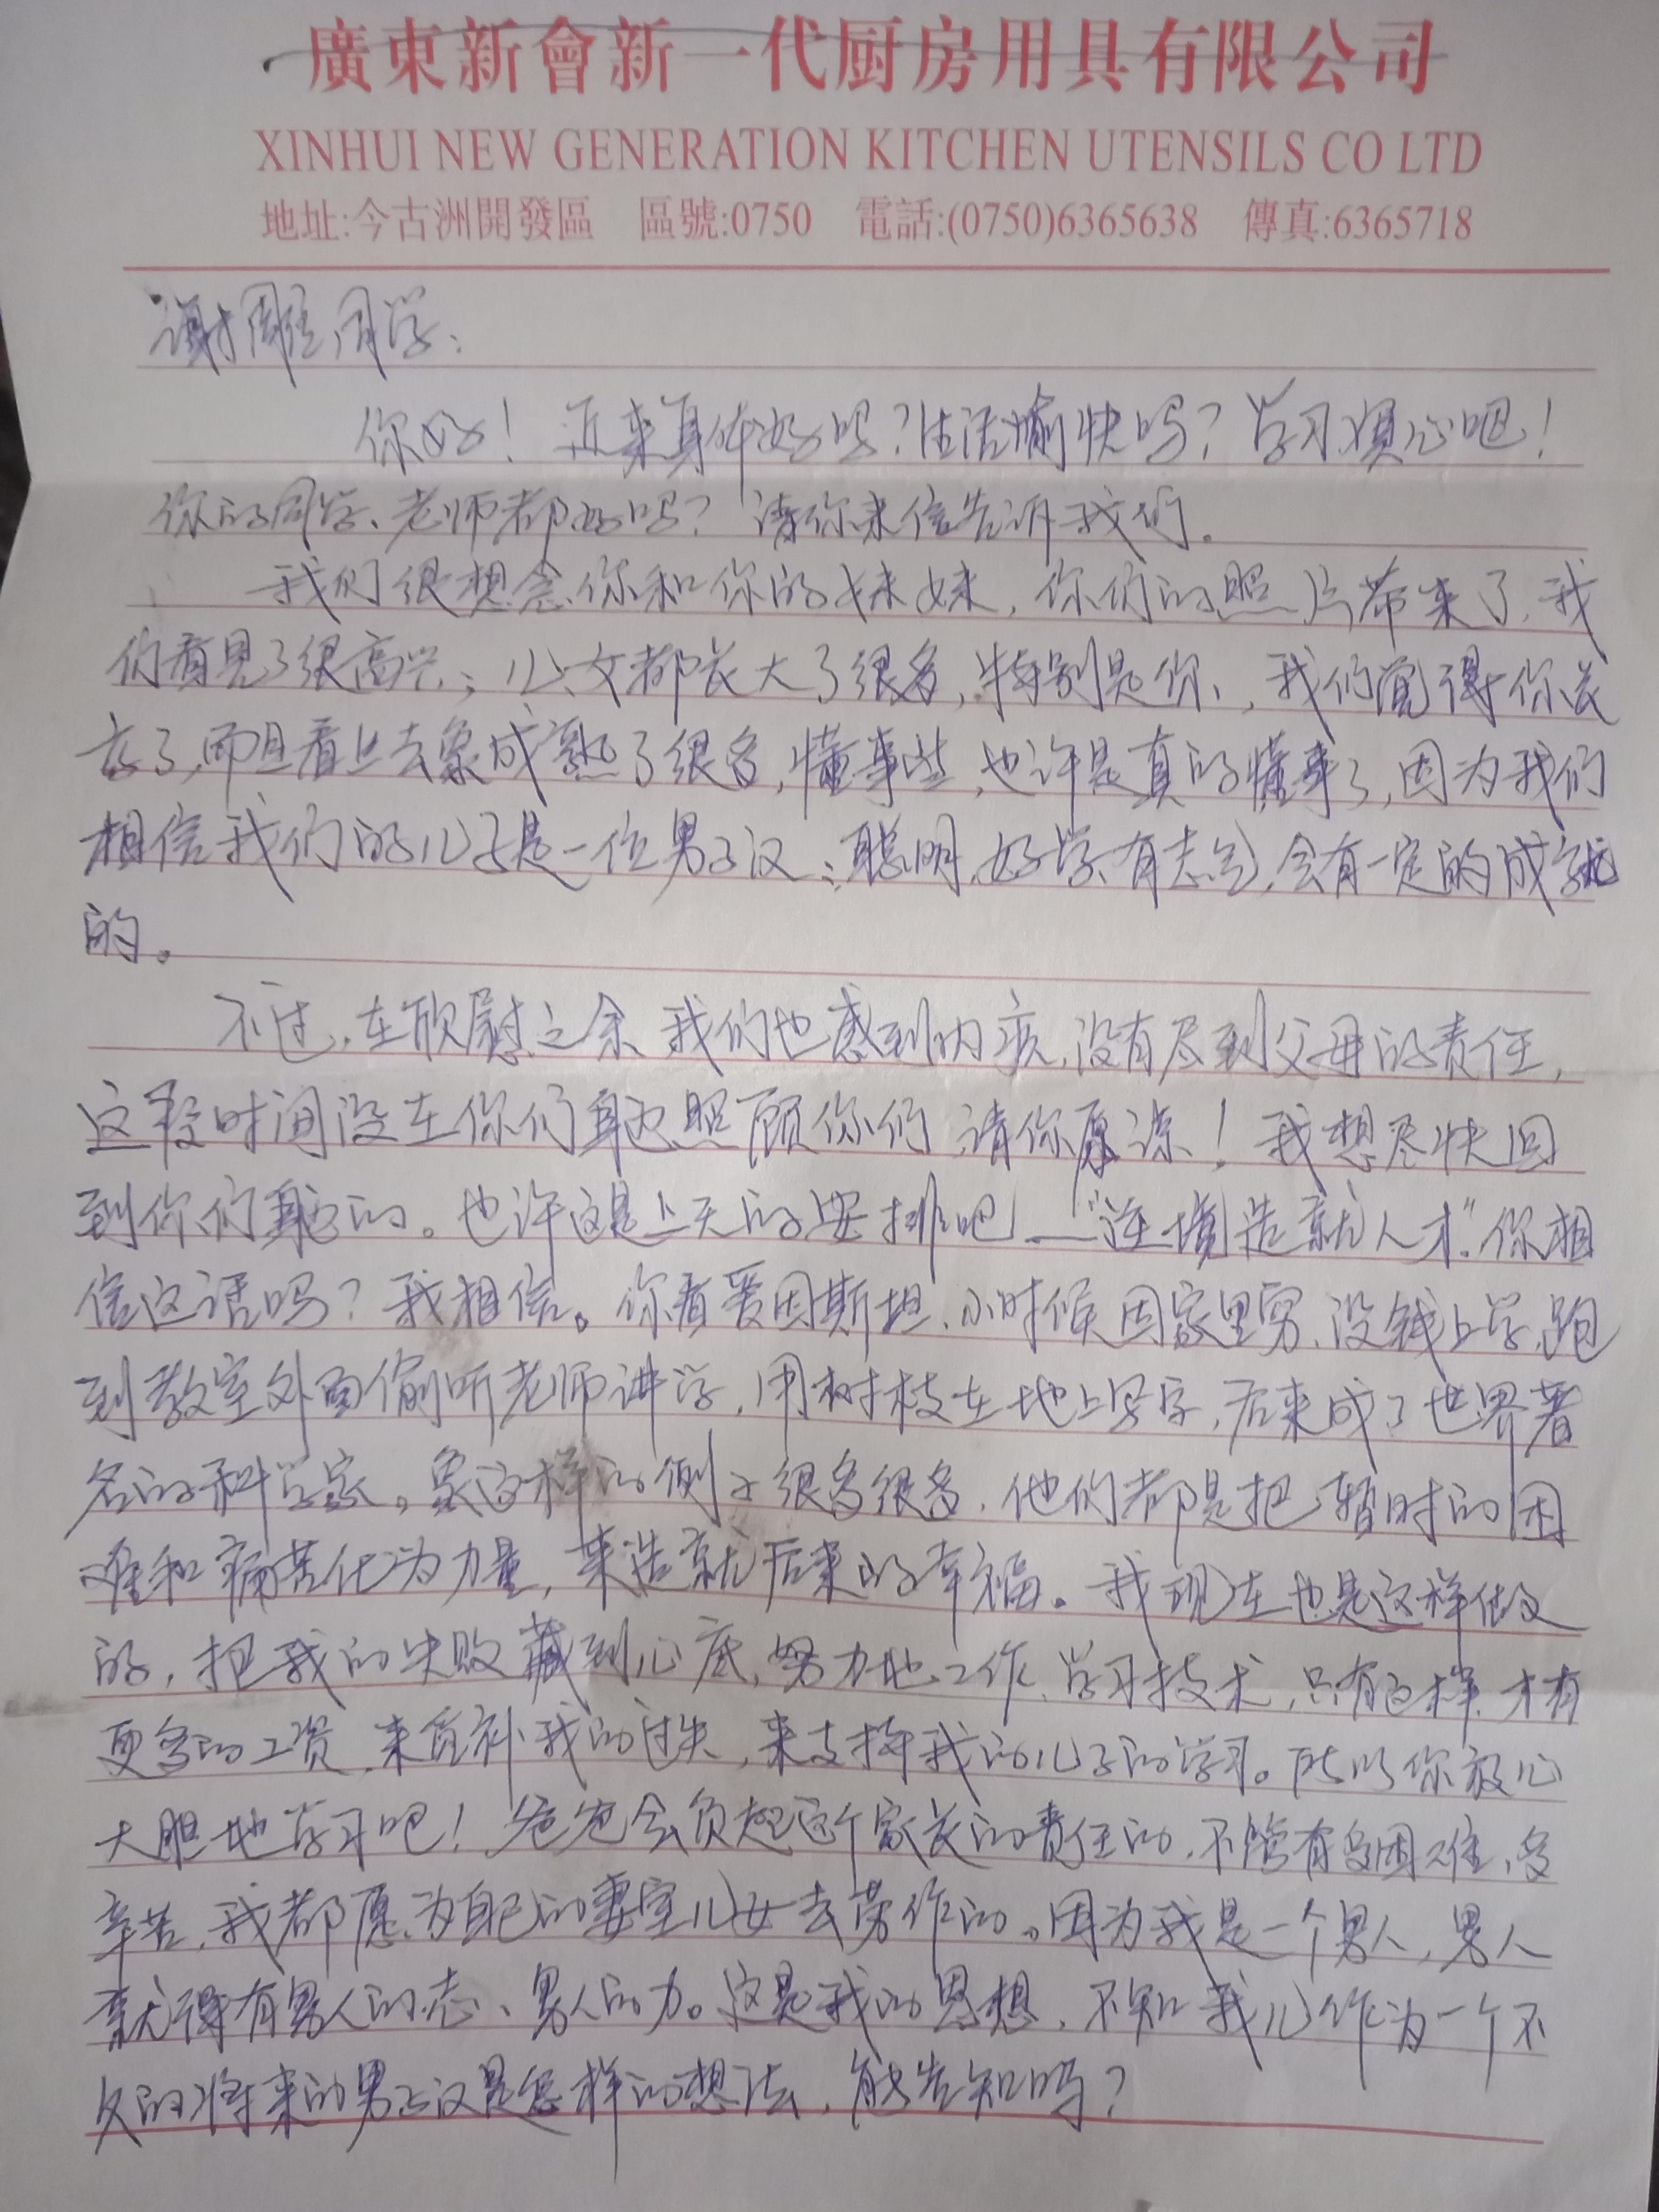 廣東新會新一代厨房用具有限公司
XINHUI NEW GENERATION KITCHEN UTENSILS CO LTD
地址:今古洲開發區 區號:0750 電話:(0750)6365638 傳真:6365718
谢雕同学:
你好！近来身体好吗？生活愉快吗？学习顺心吧！
你的同学、老师都好吗？请你来信告诉我们。
我们很想念你和你的妹妹，你们的照片带来了，我
们看见了很高兴；儿、女都长大了很多，特别是你，我们觉得你长
高了，而且看上去象成熟了很多，懂事些，也许是真的懂事了，因为我们
相信我们的儿子是一位男子汉：聪明、好学、有志气，会有一定的成就
的。
不过，在欣慰之余，我们也感到内疚，没有尽到父母的责任，
这段时间没在你们身边照顾你们，请你原谅！我想尽快回
到你们身边的。也许这是上天的安排吧——“逆境造就人才”。你相
信这话吗？我相信。你看爱因斯坦，小时候因家里穷，没钱上学，跑
到教室外面偷听老师讲学，用树枝在地上写字，后来成了世界著
名的科学家。象这样的例子很多很多，他们都是把暂时的困
难和痛苦化为力量，来造就后来的幸福。我现在也是这样做
的，把我的失败藏到心底，努力地工作、学习技术，只有这样，才有
更多的工资，来填补我的过失，来支持我的儿子的学习。所以你放心
大胆地学习吧！爸爸会负起这个家长的责任的，不管有多困难，多
辛苦，我都愿为自己的妻室儿女去劳作的。因为我是一个男人，男人
就得有男人的志、男人的力。这是我的思想，不知我儿作为一个不
久的将来的男子汉是怎样的想法，能告知吗？